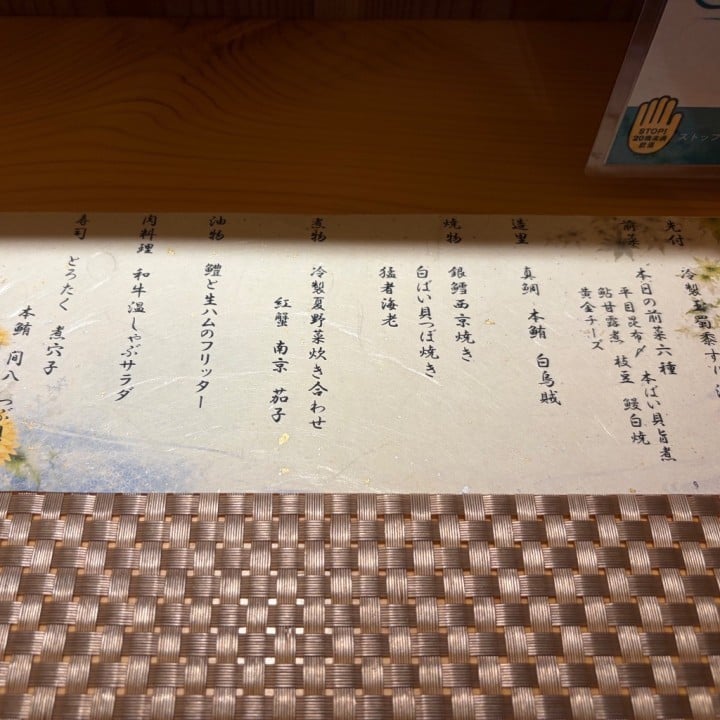 先付
冷製玉蜀黍すり流
前菜
本日の前菜六種
平目昆布〆 本ばい貝旨煮
鮎甘露煮 枝豆 鰻白焼
黄金チーズ
造里
真鯛 本鮪 白烏賊
焼物
銀鱈西京焼き
白ばい貝つぼ焼き
猛者海老
煮物
冷製夏野菜炊き合わせ
紅蟹 南京 茄子
油物
鱧と生ハムのフリッター
肉料理
和牛温しゃぶサラダ
寿司
とろたく 煮穴子
本鮪 間八 つぶ貝
STOP!
20歳未満
飲酒
ストップ